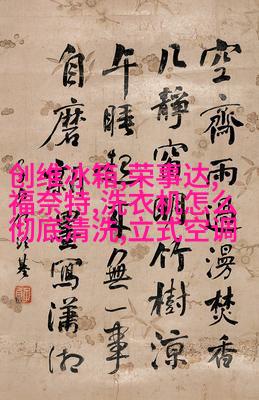 空齋雨過漫焚香
几靜窗明竹樹涼
午睡起來無一事
自磨新墨寫瀟湘
创维冰箱,荣事达,
福奈特,洗衣机怎么
彻底清洗,立式空调